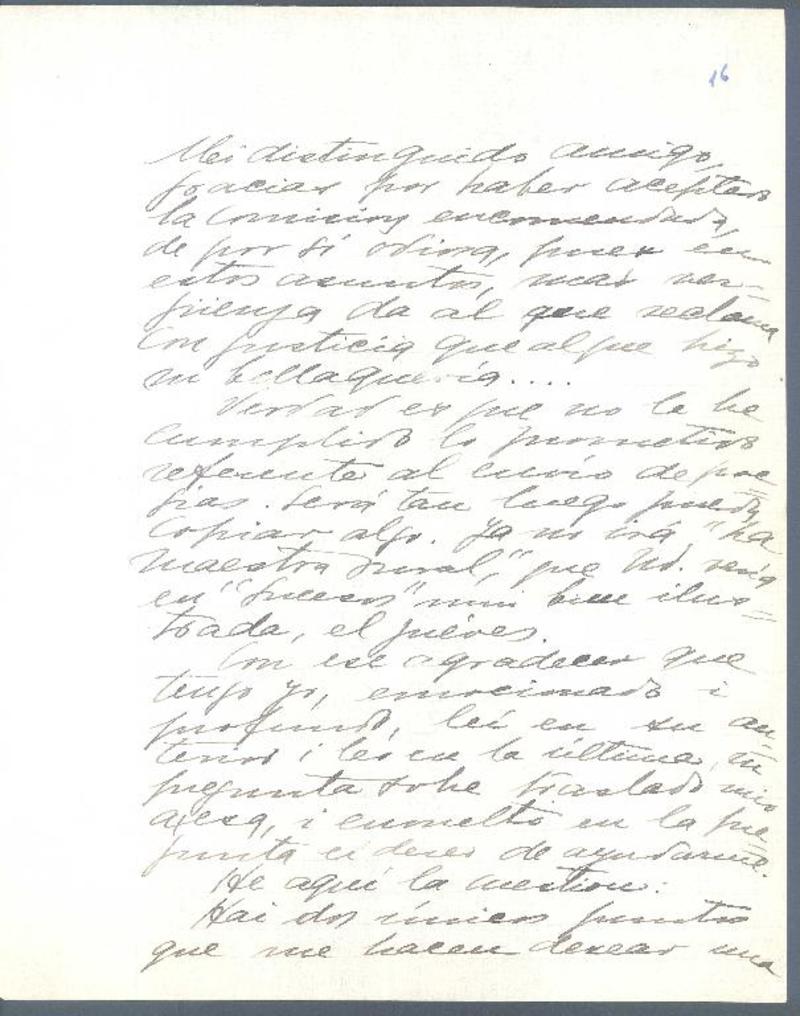 16
Mi distinguido amigo,
gracias por haber aceptado
la comision encomendada,
de por sí odiosa, pues en
estos asuntos, mas ver-
güenza da al que reclama
con justicia que al que hizo
su bellaquería....
Verdad es que no le he
cumplido lo prometido
referente al envio de poe=
sias. Será tan luego pueda
copiar algo. Ya no irá "La
Maestra Rural," que Ud. verá
en "Sucesos" mui bien ilus=
trada, el juéves.
Con ese agradecer que
tengo yo, emocionado i
profundo, leí en su an-
terior i leo en la última, su
pregunta sobre traslado mio
a esa, i envuelto en la pre
gunta el deseo de ayudarme.
He aquí la cuestion:
Hai dos únicos puntos
que me hacen desear una